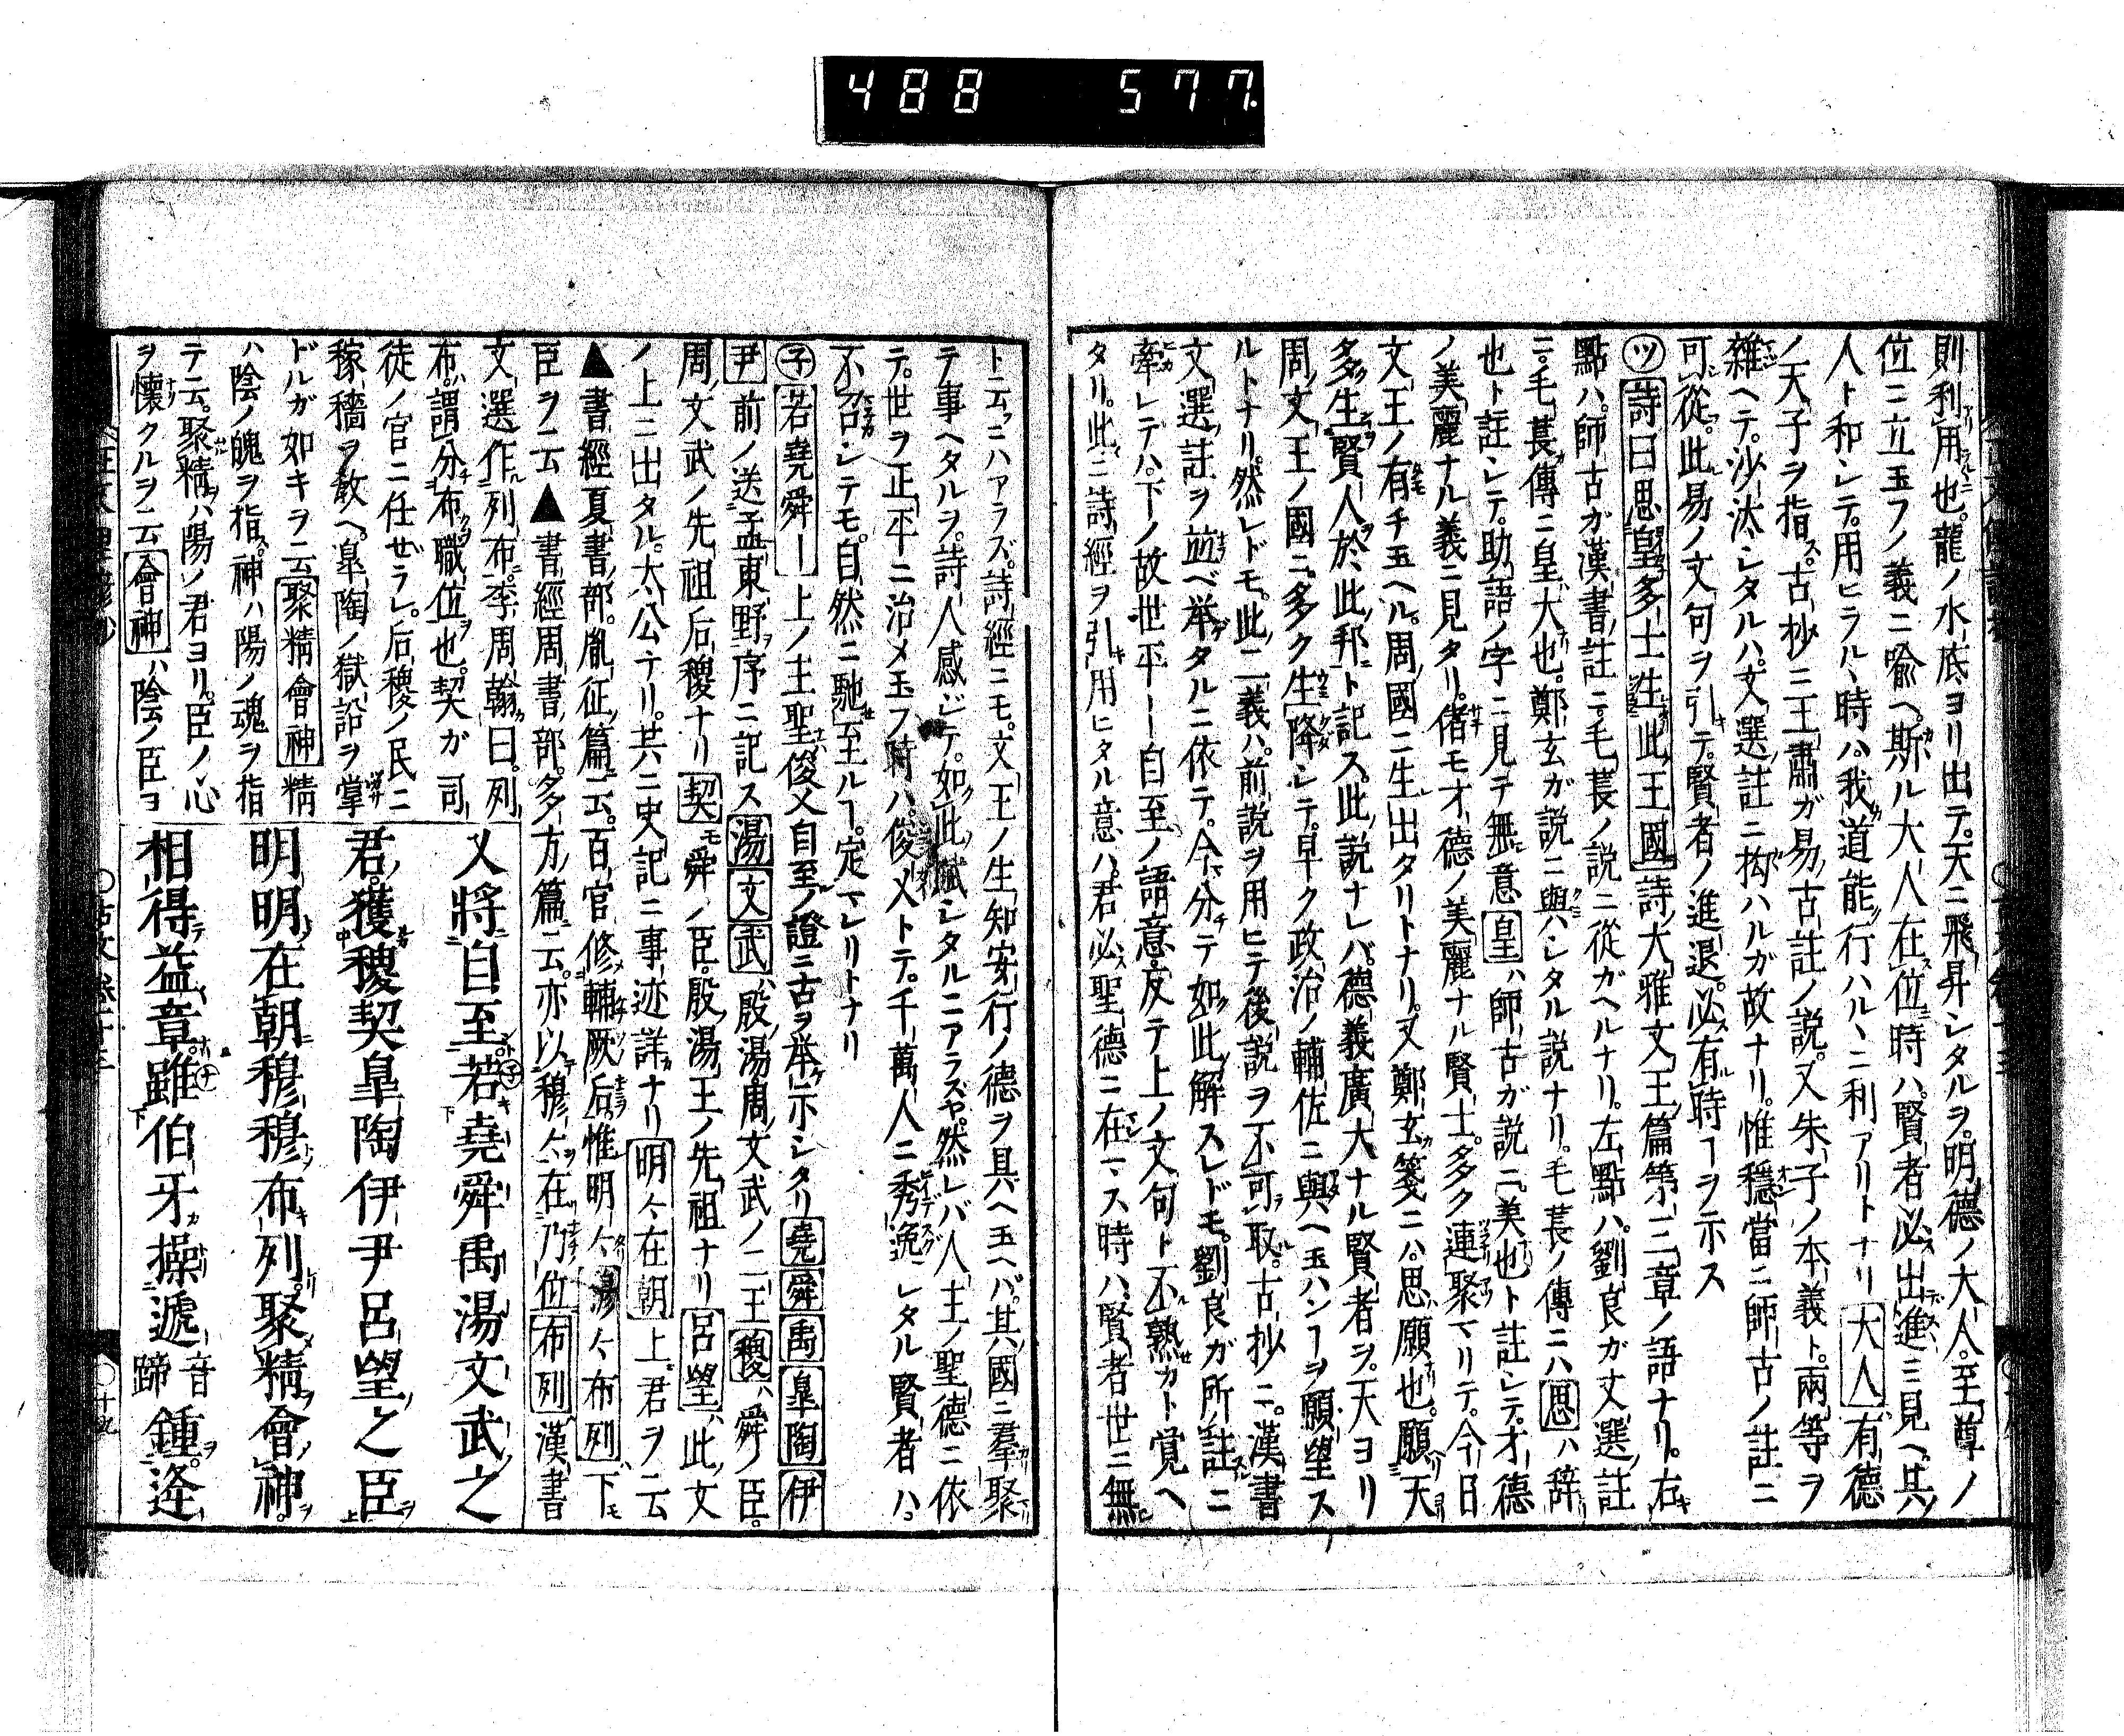 488 577
則利用也。龍ノ水底ヨリ出テ。天ニ飛昇シタルヲ。明德ノ大人。至尊ノ
位ニ立玉フノ義ニ喩ヘ。斯ル大人在位時ハ。賢者必出進ミ見ヘ。共
人ト和シテ。用ヒラルヽ時ハ。我道能行ハルヽニ利アリトナリ大人有德
ノ天子ヲ指ス。古抄ニ王肅ガ易古註ノ説。又朱子ノ本義ト。兩等ヲ
雜ヘテ。沙汰シタルハ。文選註ニ拘ハルガ故ナリ。惟穩當ニ師古ノ註ニ
可從。此易ノ文句ヲ引テ。賢者ノ進退。必有時ヿヲ示ス
㋡詩曰思皇多士生此王國詩大雅文王篇第三章ノ語ナリ。右
點ハ。師古ガ漢書註ニ毛萇ノ説ニ從ガヘルナリ。左點ハ。劉良ガ文選註
ニ。毛萇傳ニ皇大也。鄭玄が説ニ與シタル説ナリ。毛萇ノ傳ニハ思ハ辞
也ト註シテ。助語ノ字ニ見テ無意皇ハ師古ガ説ニ。美也ト註シテ。才德
ノ美麗ナル義ニ見タリ。偖モ才德ノ美麗ナル賢士。多ク連聚マリテ。今日
文王ノ有チ玉ヘル。周國ニ生出タリトナリ。又鄭玄箋ニハ。思願也。願天
多生賢人於此邦ト記ス。此説ナレバ。德義廣大ナル賢者ヲ。天ヨリ
周文王ノ國ニ。多ク生降シテ。早ク政治ノ輔佐ニ與ヘ玉ハンヿヲ願望ス
ルトナリ。然レドモ。此二義ハ。前説ヲ用ヒテ後説ヲ不可取。古抄ニ。漢書
文選註ヲ並ベ擧タルニ依テ。今分テ如此解スレドモ。劉良ガ所註ニ
牽レテハ。下ノ故世平ー自至ノ語意。反テ上ノ文句ト不熟カト覚ヘ
タリ。此ニ詩經ヲ引用ヒタル意ハ。君必聖德ニ在マス時ハ。賢者世ニ無
ト云フニハアラズ。詩經ニモ。文王ノ生知安行ノ德ヲ具ヘ玉ヘバ。其國ニ羣聚
テ事ヘタルヲ。詩人感ジテ。如此賦シタルニアラズヤ。然レバ人主ノ聖德ニ依
テ。世ヲ正平ニ治メ玉フ時ハ。俊乂トテ。千萬人ニ秀逸レタル賢者ハ。
不招シテモ。自然ニ馳至ルヿ。定マレリトナリ
㋙若堯舜ー上ノ主聖俊乂自至ノ證ニ古ヲ挙示シタリ堯舜禹皐陶伊
尹前ノ送孟東野序ニ記ス湯文武ハ殷湯周文武ノ二王稷ハ舜ノ臣。
周文武ノ先祖后稷ナリ契モ舜ノ臣。殷湯王ノ先祖ナリ呂望ハ此文
ノ上ニ出タル。太公ナリ。共ニ史記ニ事迹詳ナリ明々在朝上君ヲ云
▲書經夏書部。胤征篇云。百官修輔厥后惟明々穆々布列下モ
臣ヲ云▲書經周書部。多方篇云。亦以穆々在乃位布列漢書
文選作列布。李周翰曰。列
布。謂分布職位也。契ガ司
徒ノ官ニ任ゼラレ。后稷ノ民ニ
稼穡ヲ敎ヘ。皐陶ノ獄訟ヲ掌
ドルガ如キヲ云聚精會神精
ハ陰ノ魄ヲ指。神ハ陽ノ魂ヲ指
テ云。聚精ハ陽ノ君ヨリ。臣ノ心
ヲ懷クルヲ云會神ハ陰ノ臣ヨ
乂將自至。若堯舜禹湯文武之
君。獲稷契皐陶伊尹呂望之臣
明明在朝。穆穆布列。聚精會神。
相得益章。雖伯牙操遞音蹄鍾。逄